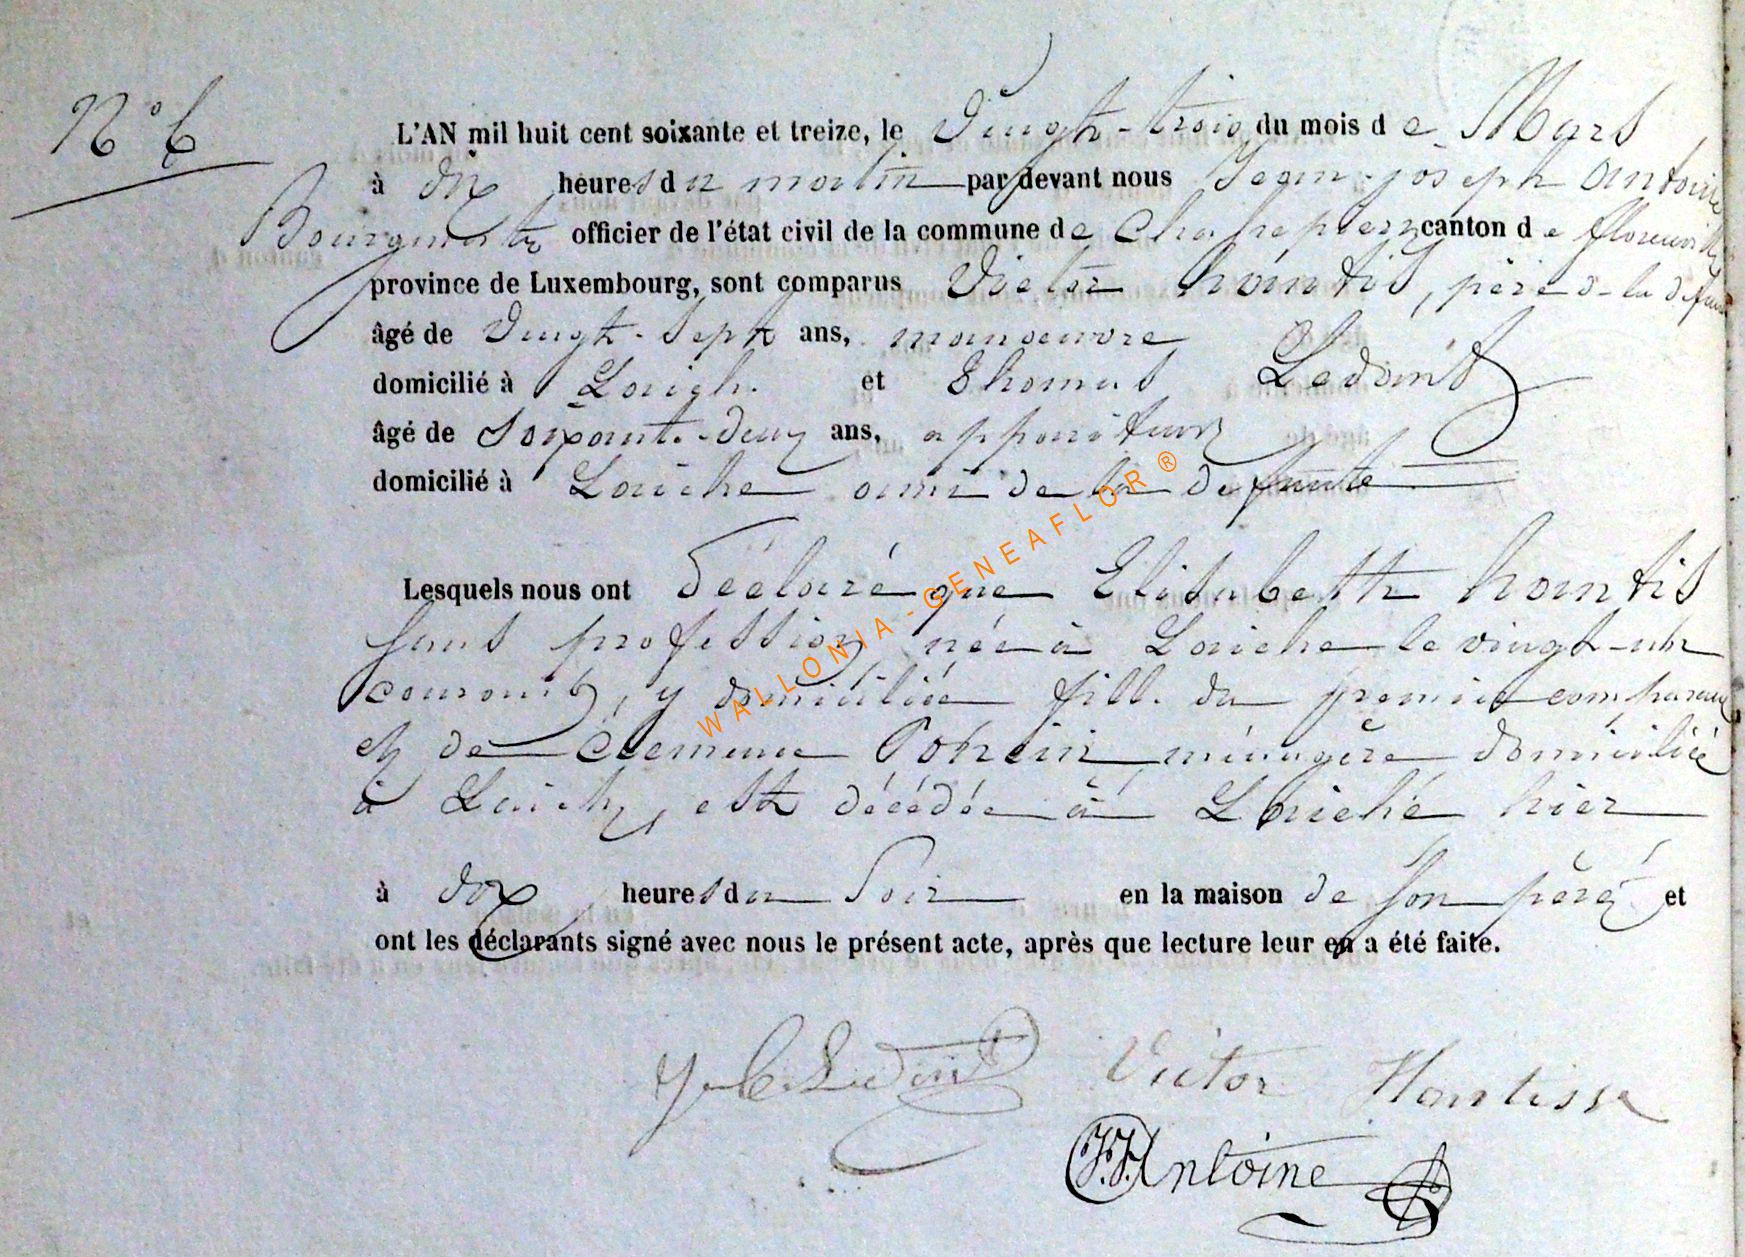 N° 6
L'AN mil huit cent soixante et treize, le Vingt-trois du mois de Mars
à dix heures du matin par devant nous Jean-joseph Antoine
Bourgmestre officier de l'état civil de la commune de Chassepierre canton de florenville
province de Luxembourg, sont comparus Victor hantis, père de la défunte
âgé de Vingt-Sept ans, manoeuvre
domicilié à Laiche et Thomas Ledant
âgé de Soixante-deux ans, appariteur
domicilié à Laiche ami de la défunte
Lesquels nous ont déclaré que Elisabeth hantis
sans profession née à Laiche le vingt-un
courant, y domiciliée fille du premier comparant
et de Clémence ménagère domiciliée
à Laiche, est décédée à Laiche hier
à dix heures du Soir en la maison de son père et
ont les déclarants signé avec nous le présent acte, après que lecture leur en a été faite.
Ledant Victor Hantisse
J.J. Antoine
WALLONIA-GENEAFLOR ®